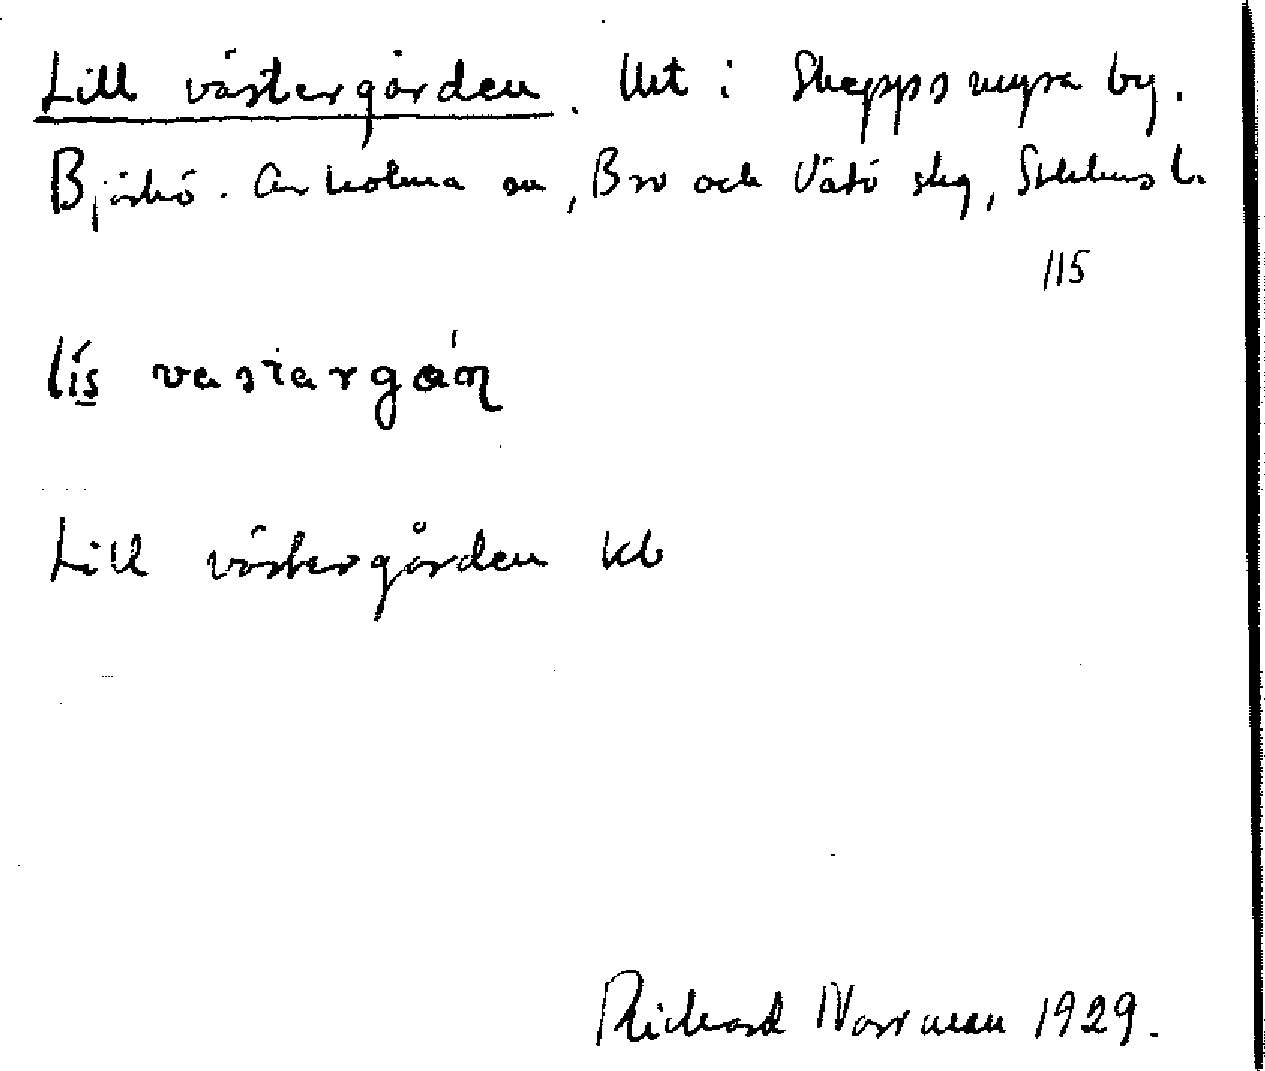 Lill västergården. Uet i Skeppsmyra by.
Björkö-Arholma sn, Bro och Vätö skg, Sthlms l.
115
lís vastargán
Lill västergården kb
Richard Norrman 1929.